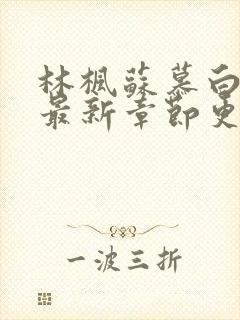 林楓蘇慕白
最新章節更
一波三折